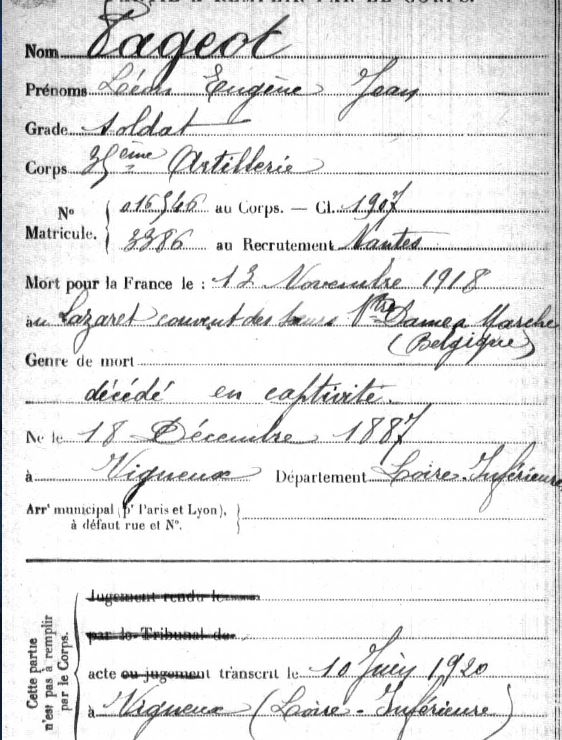 PARTIE À REMPLIR PAR LE CORPS.
Nom Pageot
Prénoms Léon Eugène Jean
Grade soldat
Corps 35ème Artillerie
N° Matricule. { 016546 au Corps. — Cl. 1907
3386 au Recrutement Nantes
Mort pour la France le : 13 Novembre 1918
au Lazaret couvent des sœurs Ntre Dame a Marche
(Belgique)
Genre de mort
décédé en captivité.
Né le 18 Décembre 1887
à Vigneux Département Loire-Inférieure
Arrt municipal (pr Paris et Lyon),
à défaut rue et N°.
Cette partie n'est pas à remplir par le Corps.
Jugement rendu le
par le Tribunal de
acte ou jugement transcrit le 10 Juin 1920
à Vigneux (Loire-Inférieure)